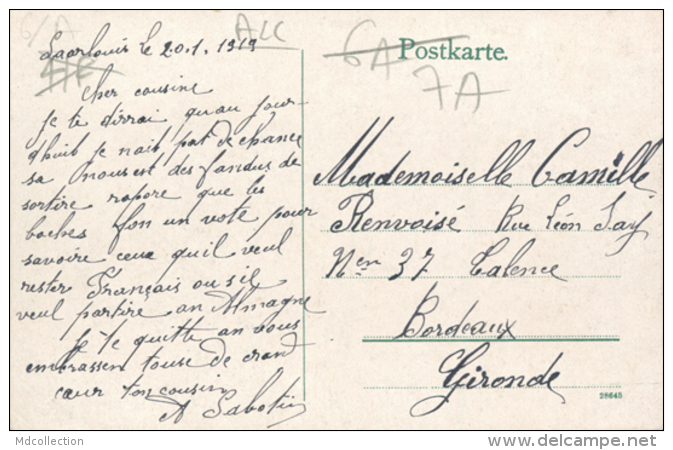 6/A
ALC
Saarlouis le 20.1.1919
Cher cousine
je te dirrai quau jour-
dhuit je nait pat de chance
sa nous est des fandus de
sortire rapore que les
boches fon un vote pour
savoire ceux quil veul
rester Français ou s'il
veul partire an Almagne
Je te quitte an vous
embrassen touse de grand
cœur ton cousin
A Sabotin
6A
Postkarte.
7A
Mademoiselle Camille
Renvoisé Rue Léon Say
37 Talence
Bordeaux
Gironde
28645
Mdcollection
delcampe.net